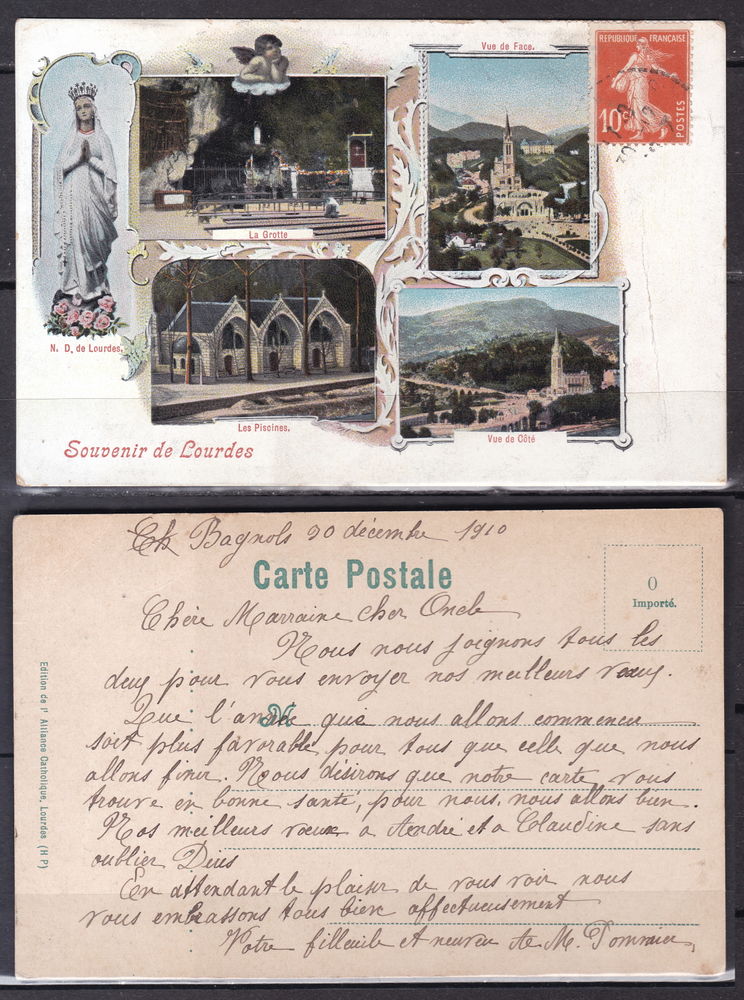 Vue de Face.
REPUBLIQUE FRANÇAISE
10c
POSTES
La Grotte
N. D. de Lourdes.
Les Piscines.
Vue de Côté
Souvenir de Lourdes
Bagnols 20 décembre 1910
Carte Postale
0
Importé.
Chère Marraine cher Oncle
Nous nous joignons tous les
deux pour vous envoyer nos meilleurs vœux.
Que l'année que nous allons commencer
soit plus favorable pour tous que celle que nous
allons finir. Nous désirons que notre carte vous
trouve en bonne santé, pour nous, nous allons bien.
Nos meilleurs vœux a André et a Claudine sans
oublier
En attendant le plaisir de vous voir nous
vous embrassons tous bien affectueusement
Votre filleule et neveu A. M. Pommier
Edition de l' Alliance Catholique, Lourdes (H P)